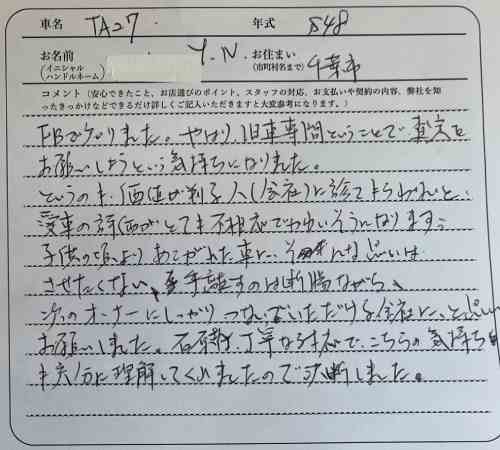 車名 TA27 年式 S48
お名前 Y.N. お住まい 千葉市
(イニシャル (市町村名まで)
ハンドルネーム)
コメント (安心できたこと、お店選びのポイント、スタッフの対応、お支払いや契約の内容、弊社を知
ったきっかけなどできるだけ詳しくご記入いただきますと大変参考になります。)
FBで知りました。やはり、旧車専門ということで、査定を
お願いしようという気持ちになりました。
というのも、価値が判る人(会社)に診てもらわれないと、
愛車の評価がとても不相応でかわいそうになります。
子供の頃よりあこがれた車に、そんな思いは
させたくない、手離すのは断腸ながら、
次のオーナーにしっかりつないでいただける会社に、と思い
お願いしました。石原様、丁寧な対応で、こちらの気持ち
も充分に理解してくれましたので決断しました。